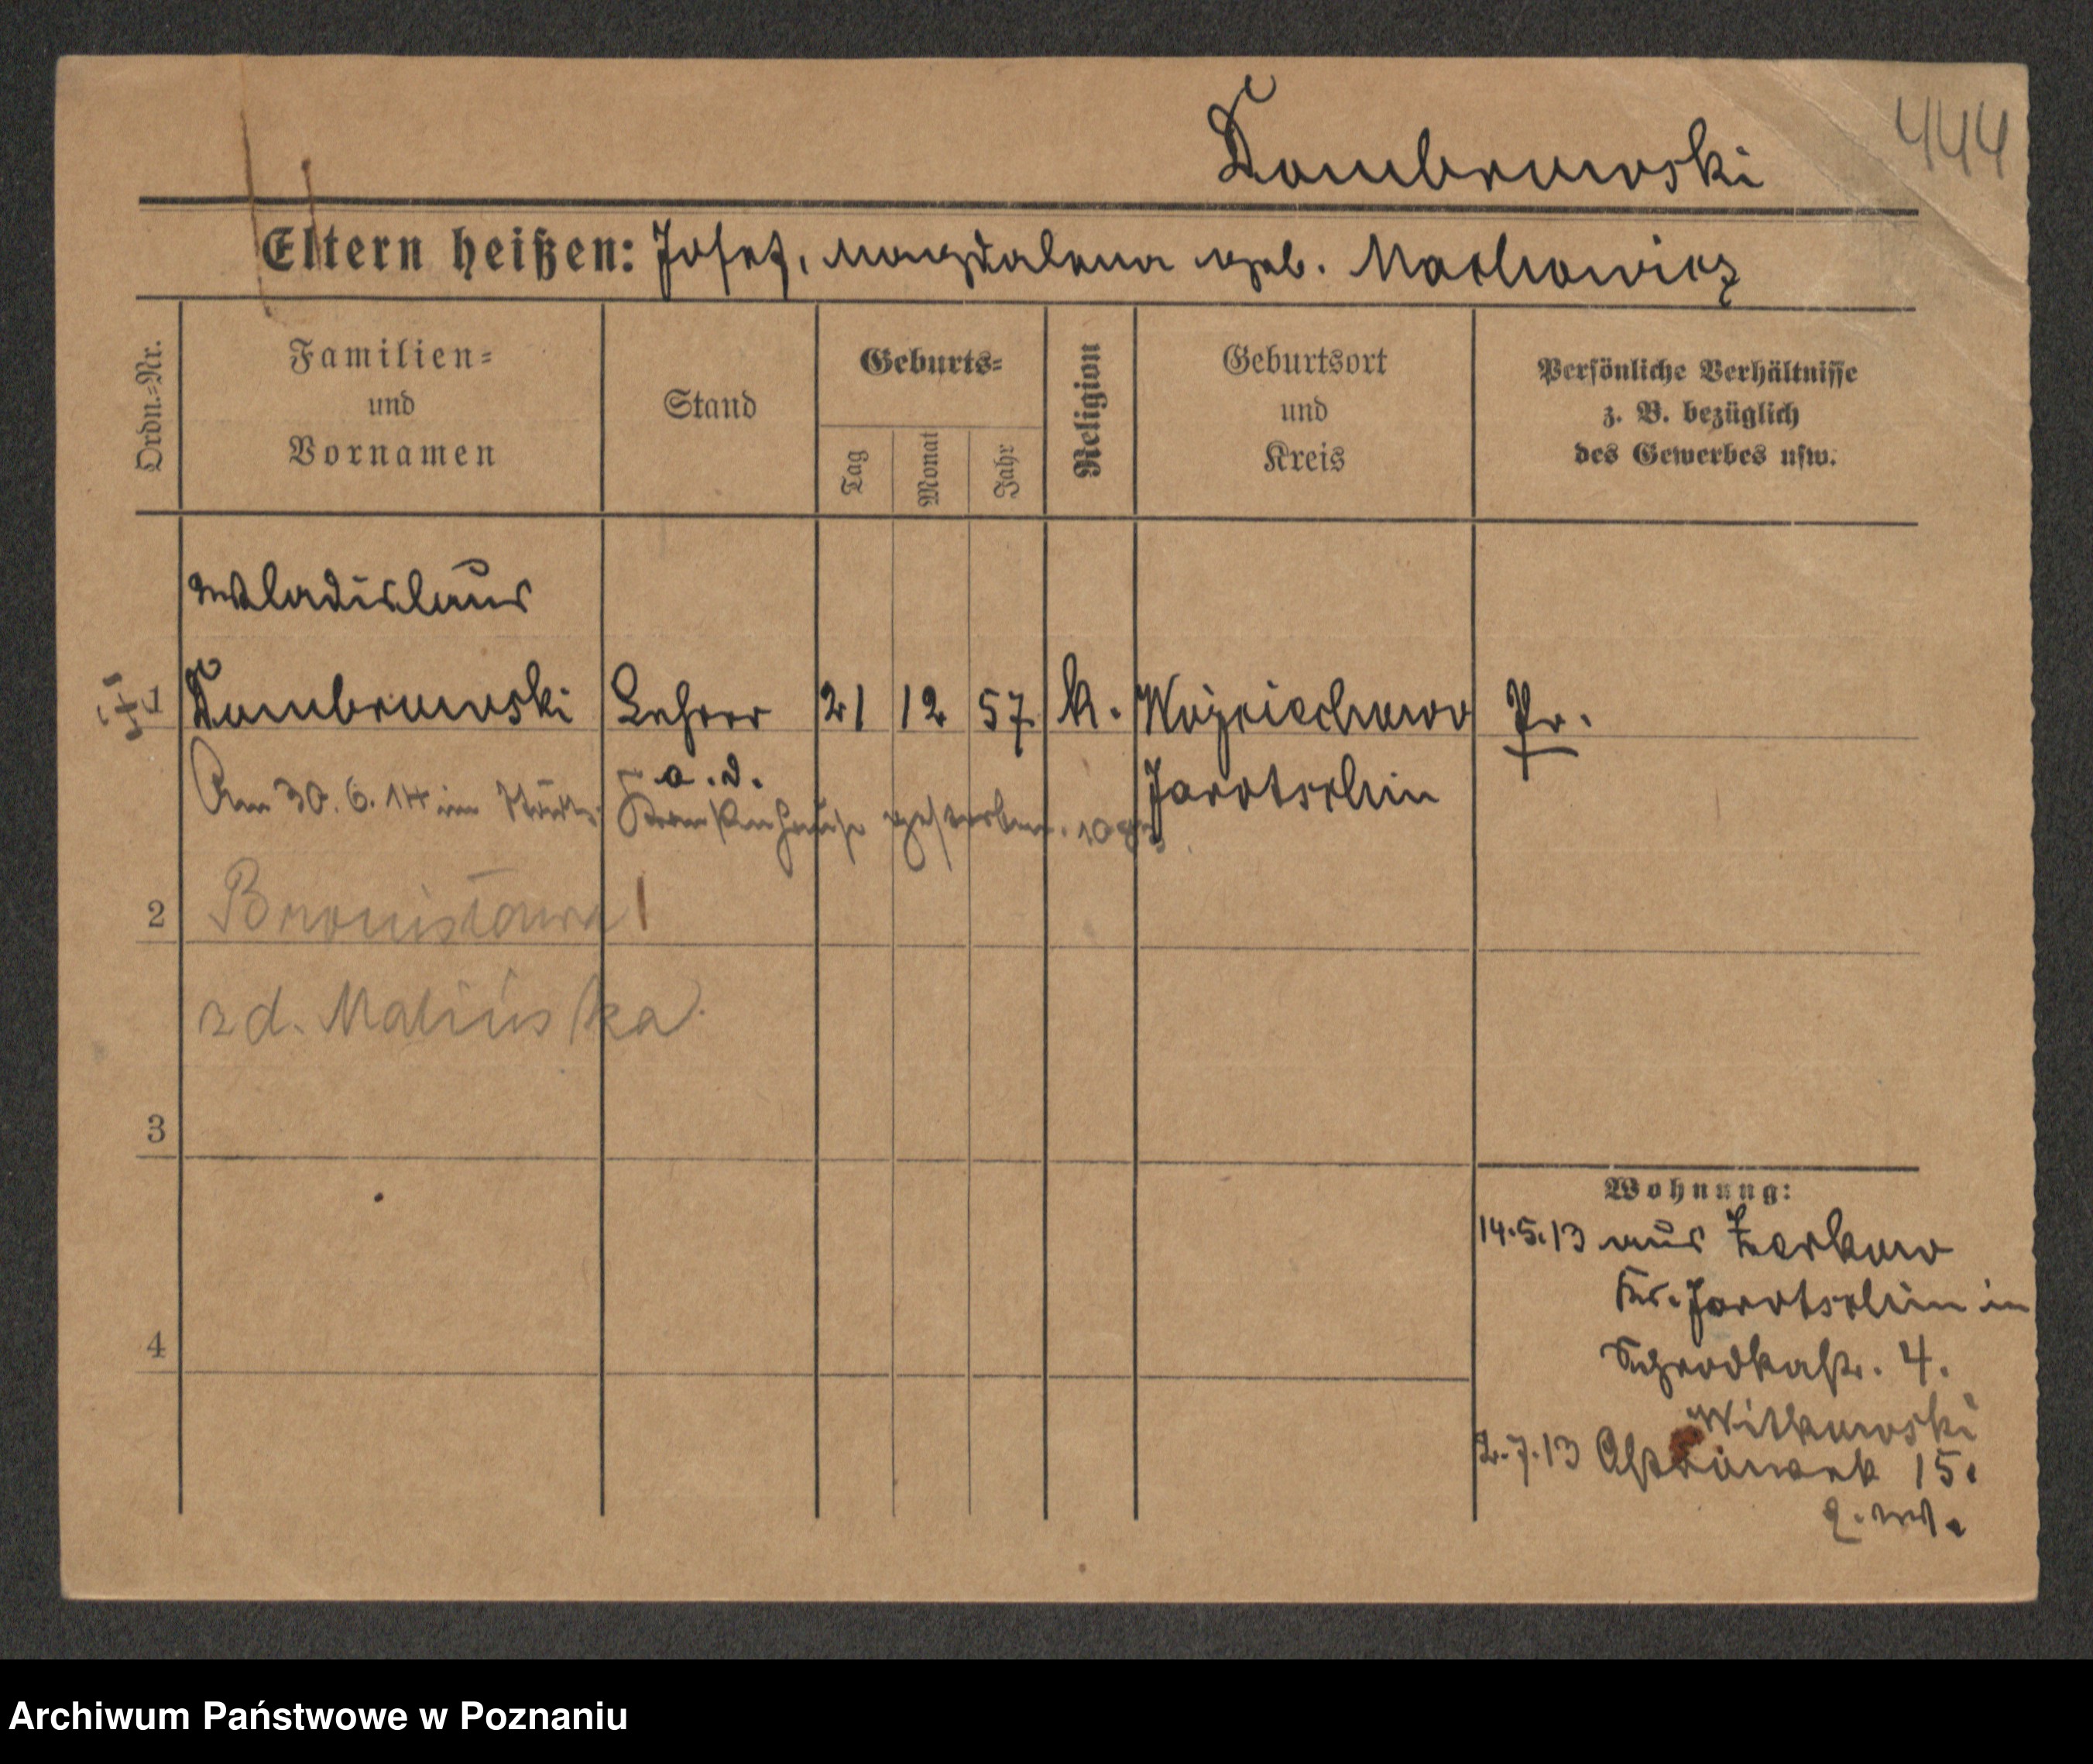 444
Dombrowski
Eltern heißen: Josef, Magdalena geb. Machowicz
Ordn.-Nr.
Familien-
und
Vornamen
Stand
Geburts-
Tag
Monat
Jahr
Religion
Geburtsort
und
Kreis
Persönliche Verhältnisse
z. B. bezüglich
des Gewerbes usw.
Wladislaus
1 Dombrowski Lehrer 21 12 57 k. Wojciechowo Pr.
a. D. Jarotschin
Am 30.6.14 im städt. Krankenhause gestorben.
2 Bronisława
zd.
3
4
Wohnung:
14.5.13 aus Zerkow
Kr. Jarotschin in
Schrodkastr. 4.
Witkowski
2.7.13 15.